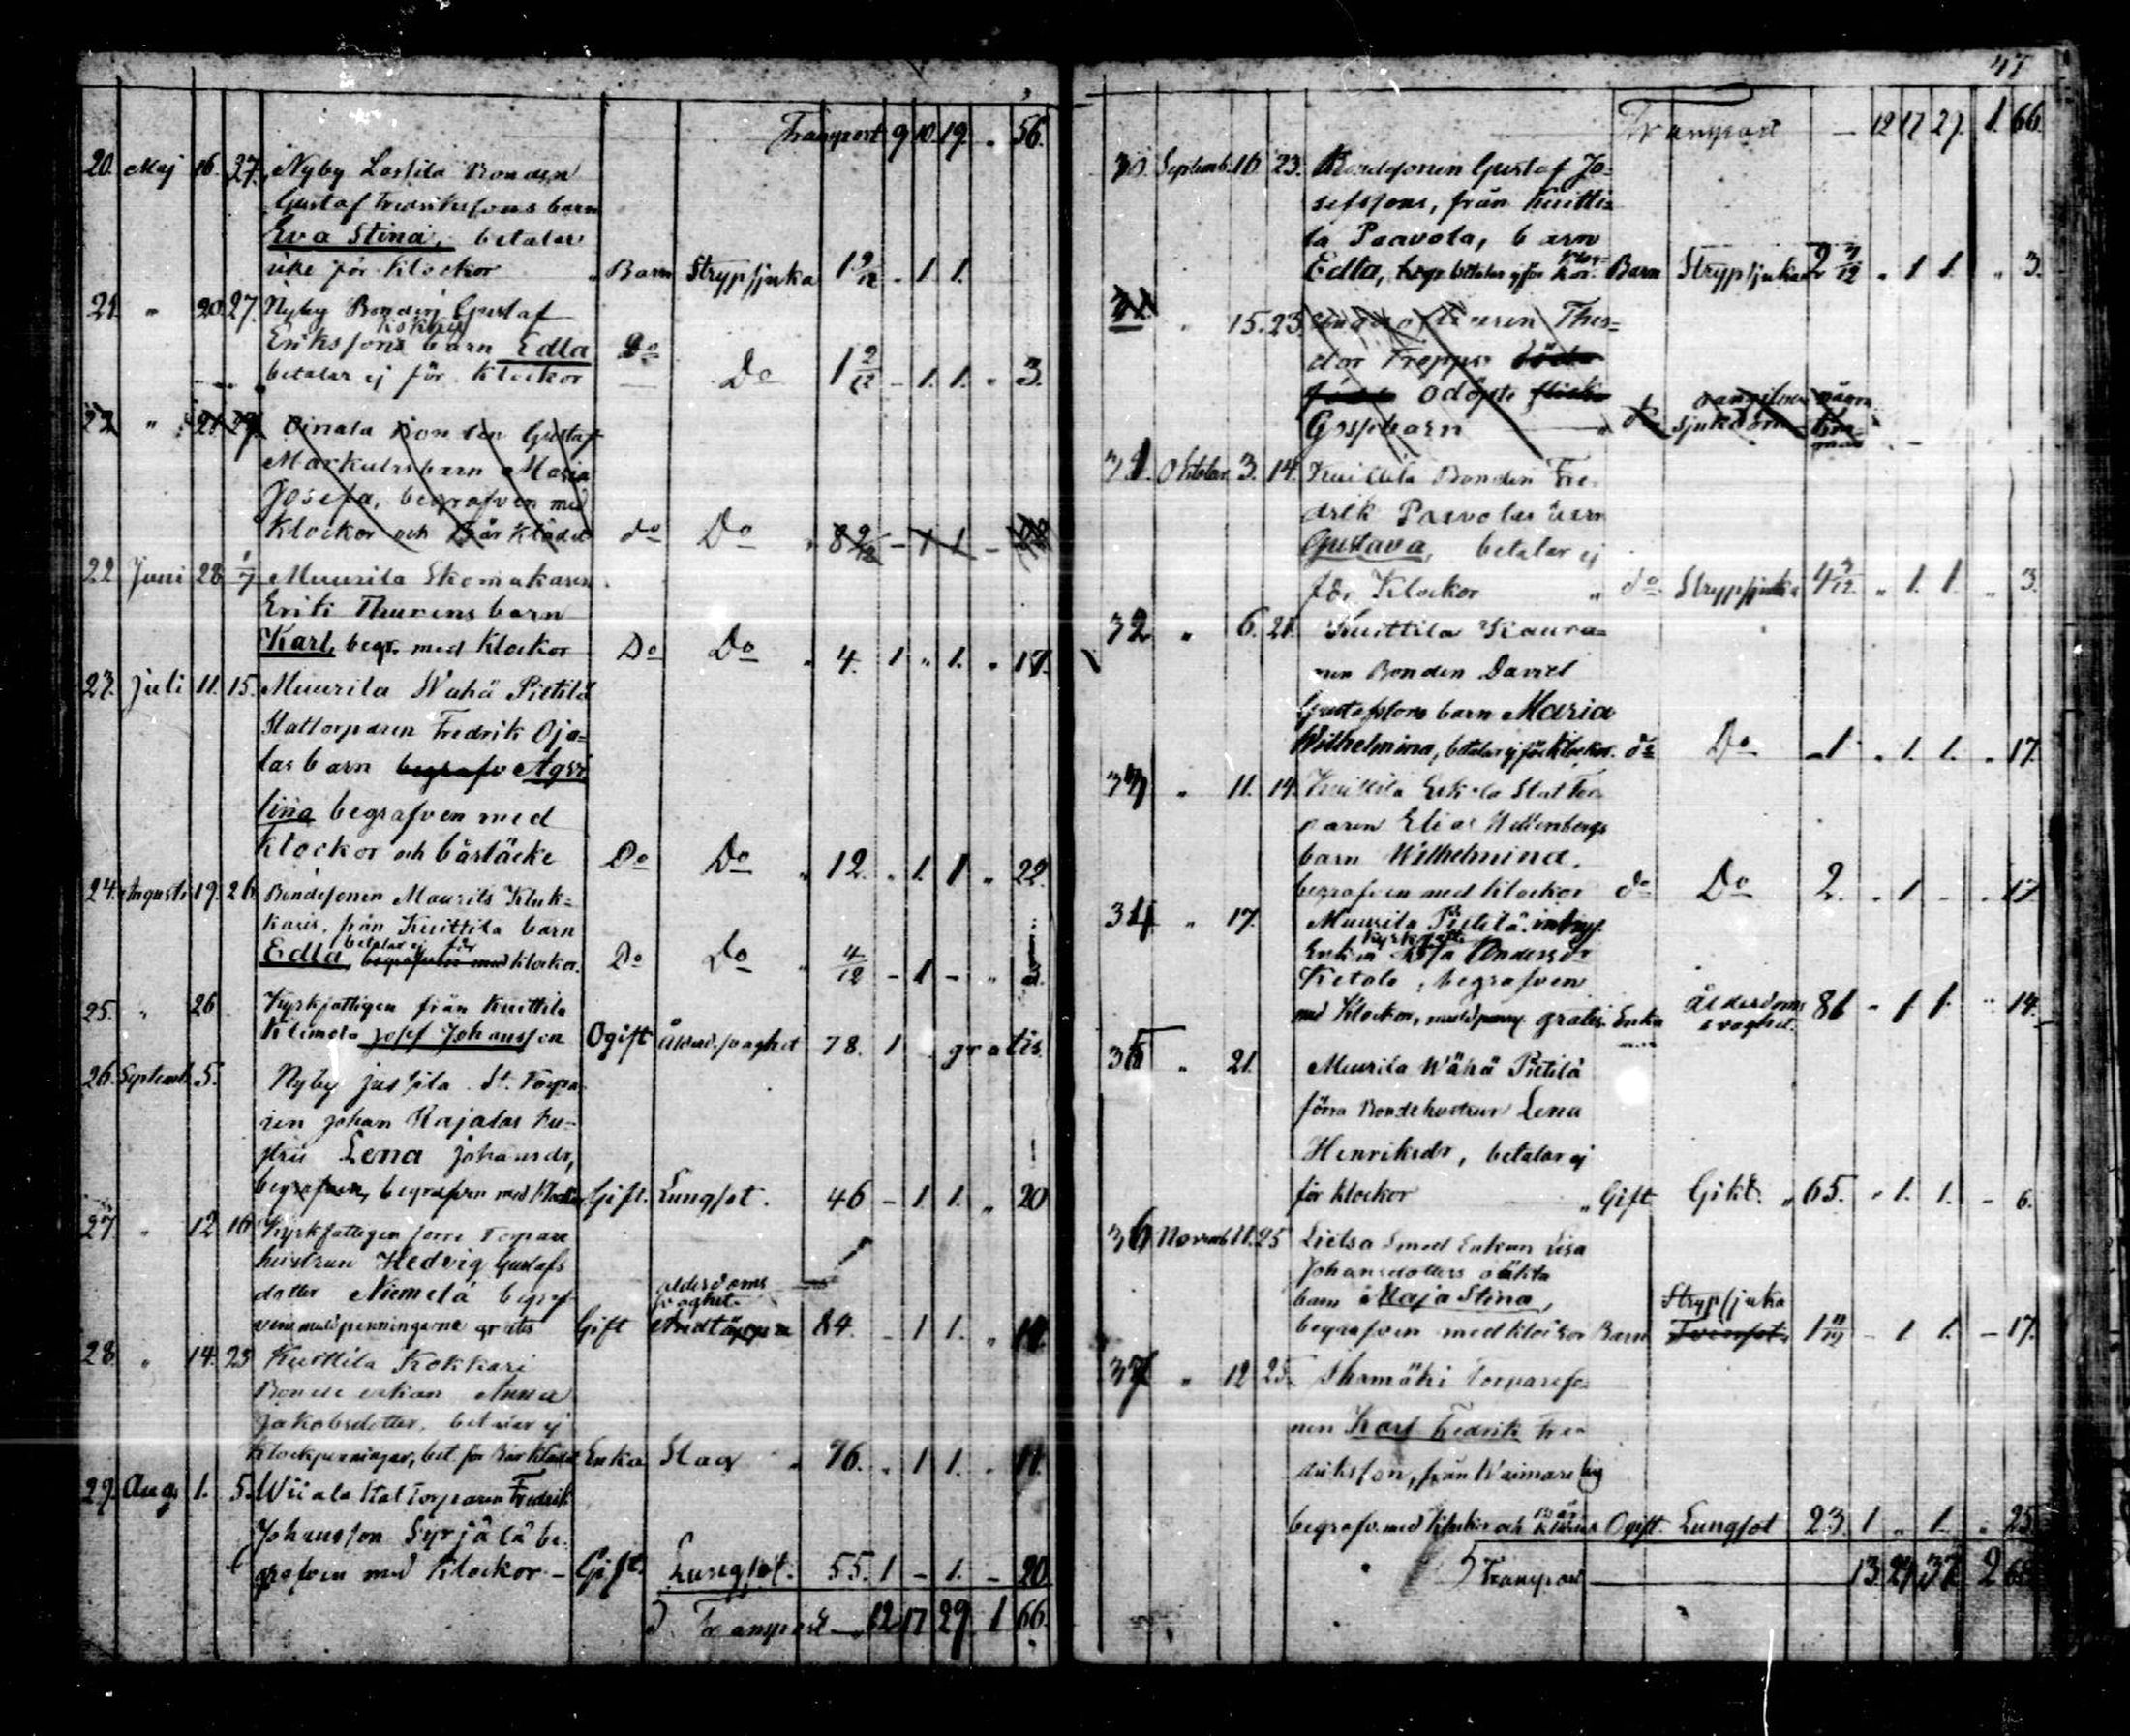 Transport 9 10 19 " 56.
20. Maj 16. 27. Nyby Lassila Bonden
Gustaf Fredrikssons barn
Eva Stina, betalar
icke för klockor " Barn Strypsjuka 1 9/12 - 1 1.
21 " 20. 27. Nyby Bonden Gustaf
Erikssons barn Edla Do
betalar ej för klockor Do 1 2/12 - 1. 1. " 3.
22 " 21 27 Bonden Gustaf
Markulas barn Maria
Josefa, begrafven med
klockor och Bår kläde do Do " 8 9/12 - 1 1. -
22 Juni 28 1/7 Muurila Skomakaren
Erik Thurens barn
Karl, begr. med klockor Do Do " 4. 1 " 1. " 17.
23. Juli 11. 15. Muurila Wähä Pietilä
Stattorparen Fredrik Oja-
las barn begrafv Agri
lina begrafven med
klockor och bårtäcke Do Do " 12. " 1. 1 " 22.
24. Augusti 19. 26. Bondesonen Maurits Kluk-
karis, från Knittila barn
betalar ej för
Edla, begrafven med klockor. Do Do " 4/12 - 1 - " 3.
25. " 26 Kyrkfattigen från Knittila
Klemola Josef Johansson Ogift Ålderd. svaghet 78. 1 gratis.
26. Septemb. 5. Nyby Jussila St. Torpa-
ren Johan Rajalas hu-
stru Lena Johansdr,
begrafven, begrafven med klockor Gift. Lungsot. 46 - 1 1. " 20
27. " 12 16 Kyrkfattigen förre Torpare
hustrun Hedvig Gustafs
dotter Niemelä begraf- ålderdoms
svaghet.
ven muldpenningarne gratis Gift Andtäppa 84. - 1 1. " 11.
28. " 14. 23 Knittila Kokkari
Bonde enkan Anna
Jakobsdotter, betalar ej
klockpenningar, bet. för Bårkläde Enka Slag " 76. " 1 1. " 11.
29. Aug. 1. 5. Wiiala Stattorparen Fredrik
Johansson Syrjälä be-
grafven med klockor - Gift. Lungsot. 55. 1 - 1. - 20
Transport 12 17 29 1 66.
47
Transport - 12 17 29. 1. 66.
30. Septemb. 16 23. Bondesonen Gustaf Jo-
sefssons, från Knitti-
la Paavola, barn
Edla, begr. betalar ej för klockor. Barn Strypsjuka 2 7/12 " 1 1. " 3.
31. " 15. 23. Theo-
dor odöpte
Gossebarn do
31. Oktober 3. 14. Knittila Bonden Fre-
drik Paavolas barn
Gustava, betalar ej
för Klockor " do Strypsjuka 4 3/12 " 1. 1. " 3.
32 " 6. 21. Knittila Kaura-
nen Bonden David
Gustafssons barn Maria
Wilhelmina, betalar ej för klockor. do Do 1 " 1. 1. " 17.
33 " 11. 14. Knittila Erkkila Stattor-
paren Elias Wellenbergs
barn Wilhelmina,
begrafven med klockor do Do 2. " 1 - " 17
34 " 17. Muurila Pietilä inhys.
kyrkfattig
Enkan Lisa Andersdr
Ketola, begrafven
med klockor, muldpenng. gratis. Enka ålderdoms
svaghet. 81 - 1 1. " 14.
35 " 21. Muurila Wähä Pietilä
förra Bondehustrun Lena
Henriksdr, betalar ej
för klockor " Gift Gikt. " 65. " 1. 1. - 6.
36 Novemb. 11. 25 Lietsa Smed Enkan Lisa
Johansdotters oäkta
barn Maja Stina, Strypsjuka
begrafven med klockor Barn Tvinsot. 1 11/12 - 1 1. - 17.
37 " 12 25. Torpareso-
nen Karl Fredrik Fre-
driksson, från
begrafv. med klockor och Bår kläde Ogift. Lungsot 23. 1 " 1. " 25
Transport 13 24 37 2 68